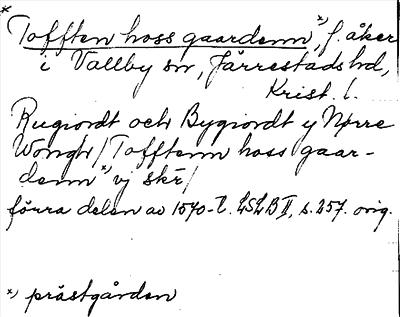 * Tofften hoss gaardenn*), f. åker
i Vallby sn, Järrestads hd,
Krist. l.
Rugiordt och Bygiordt y Nørre
Wongh / Tofftenn hoss gaar-
denn*) vj skr /
förra delen av 1570-t. LSLB II, s. 257. orig.
*) prästgården